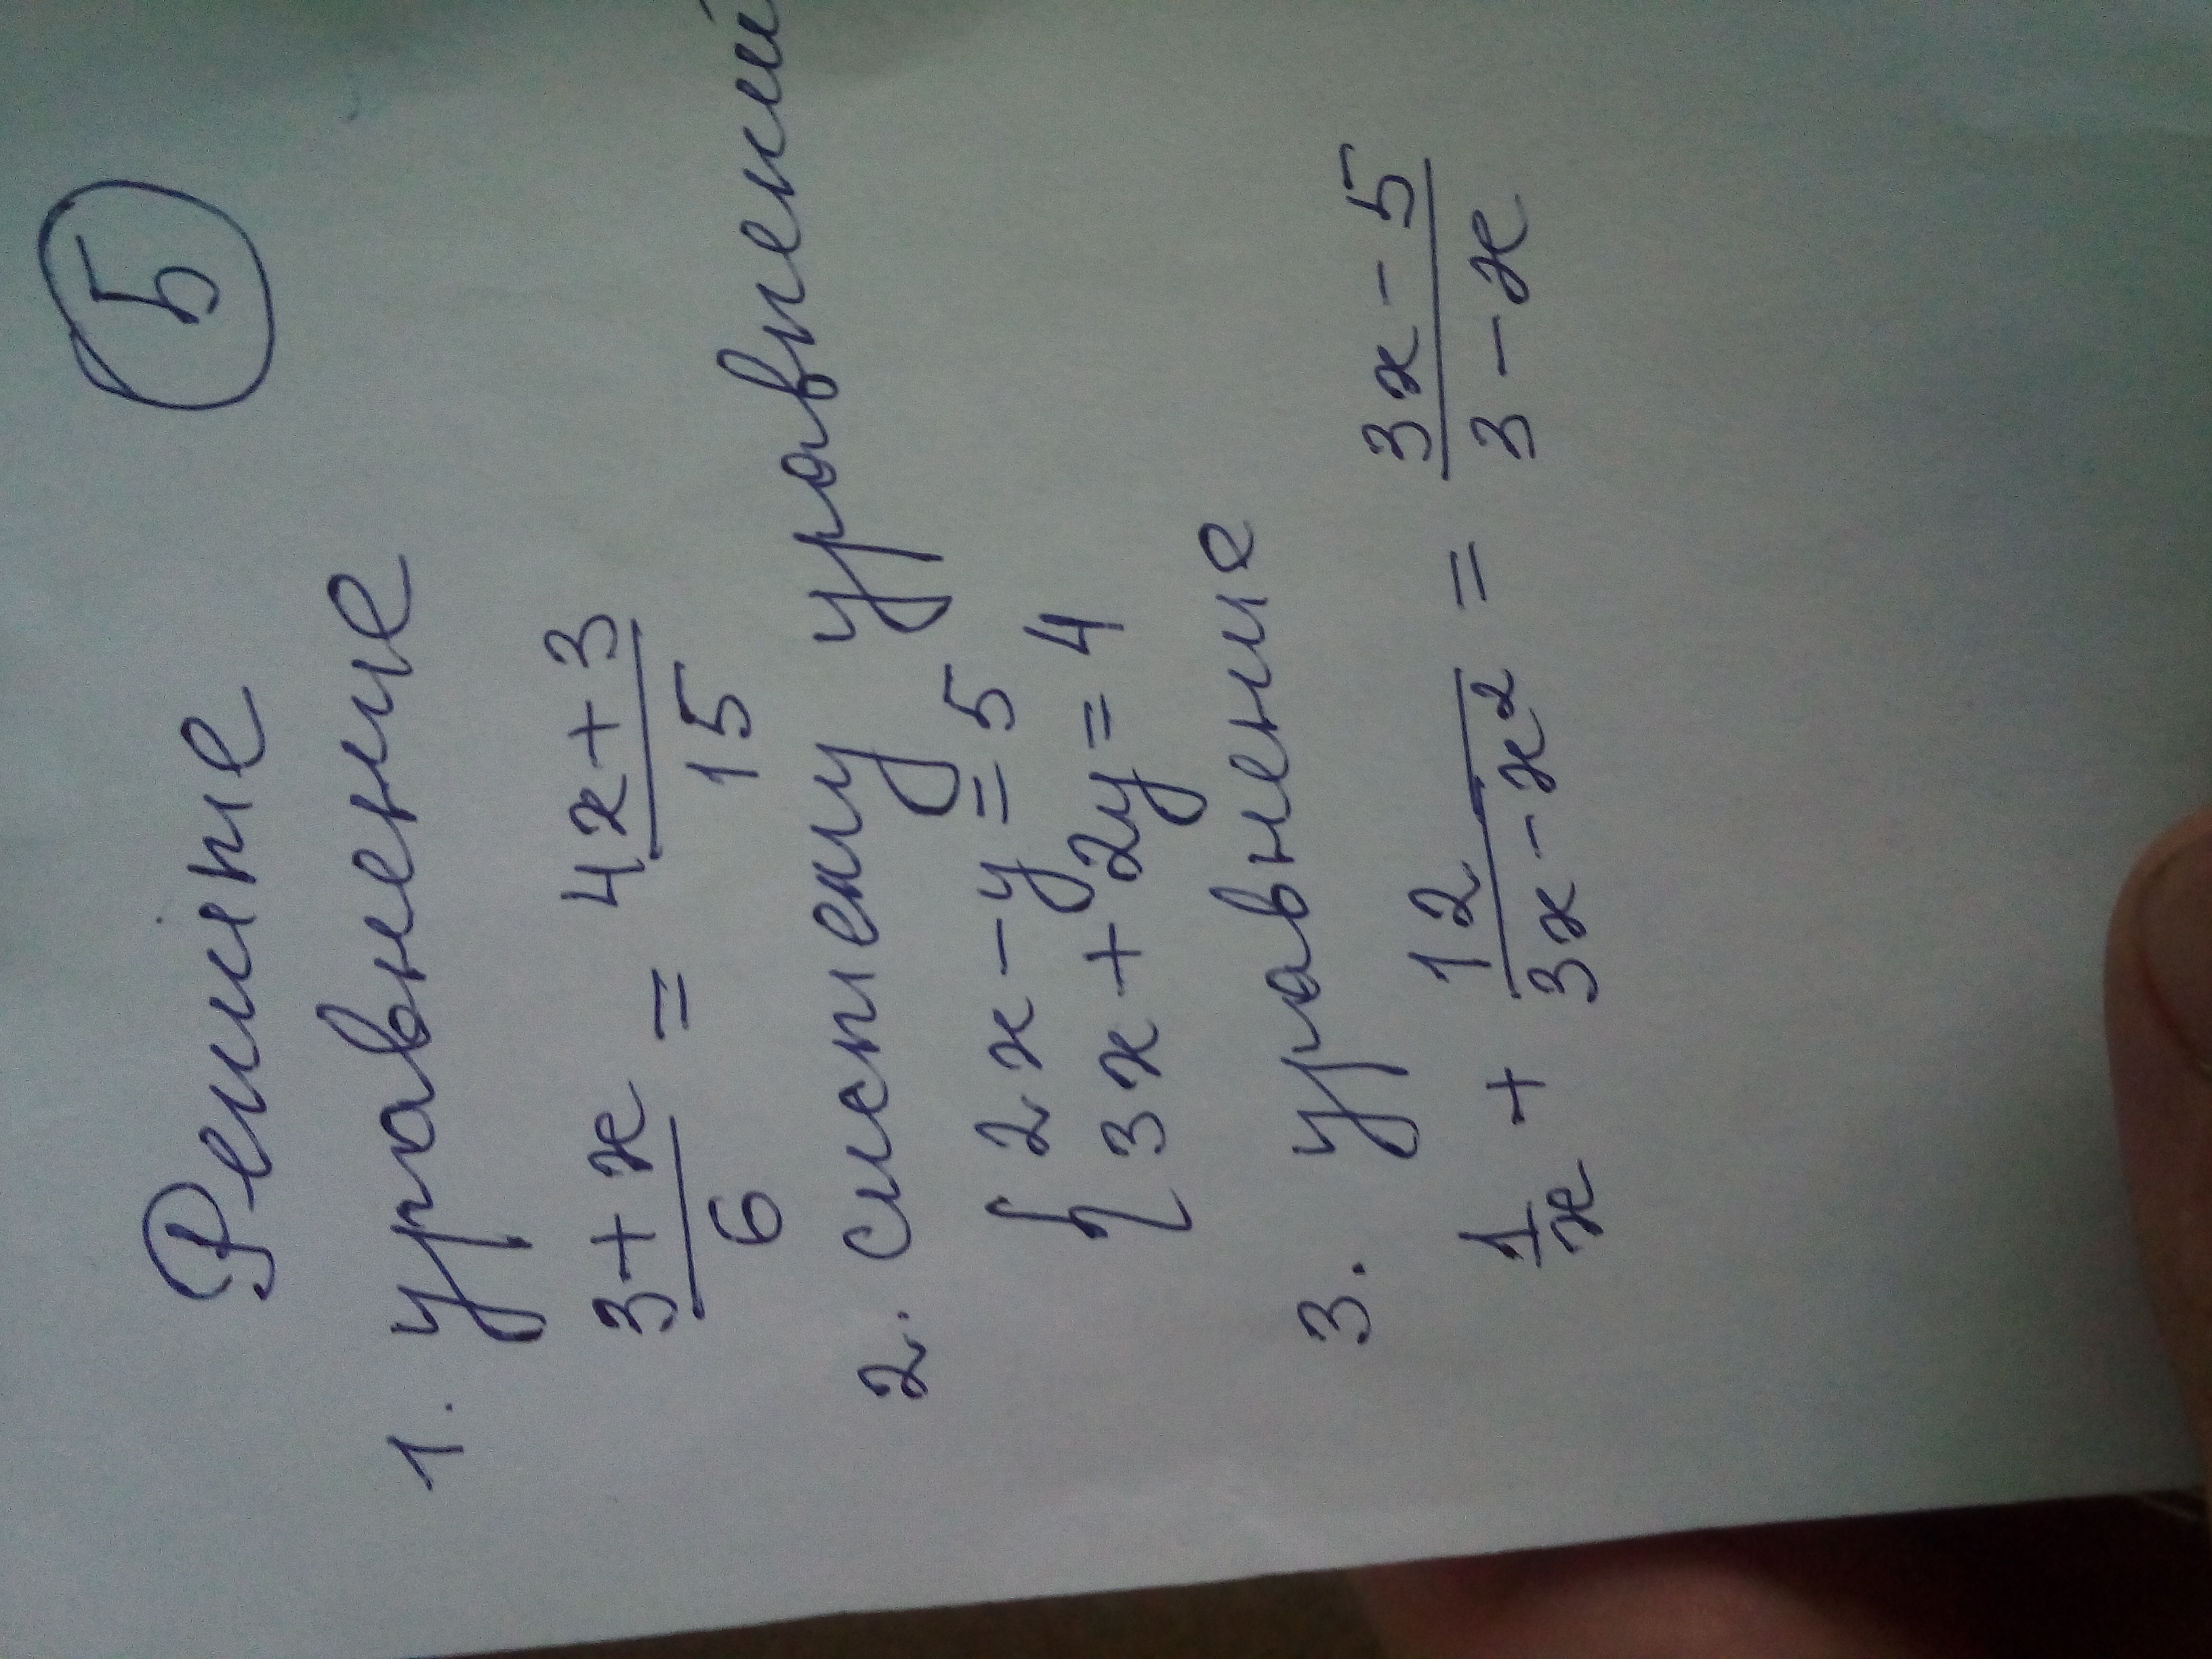 5
Решите
1. уравнение
3+x/6 = 4x+3/15
2. систему уравнений
{2x-y=5
3x+2y=4
3. уравнение
1/x + 12/3x-x² = 3x-5/3-x